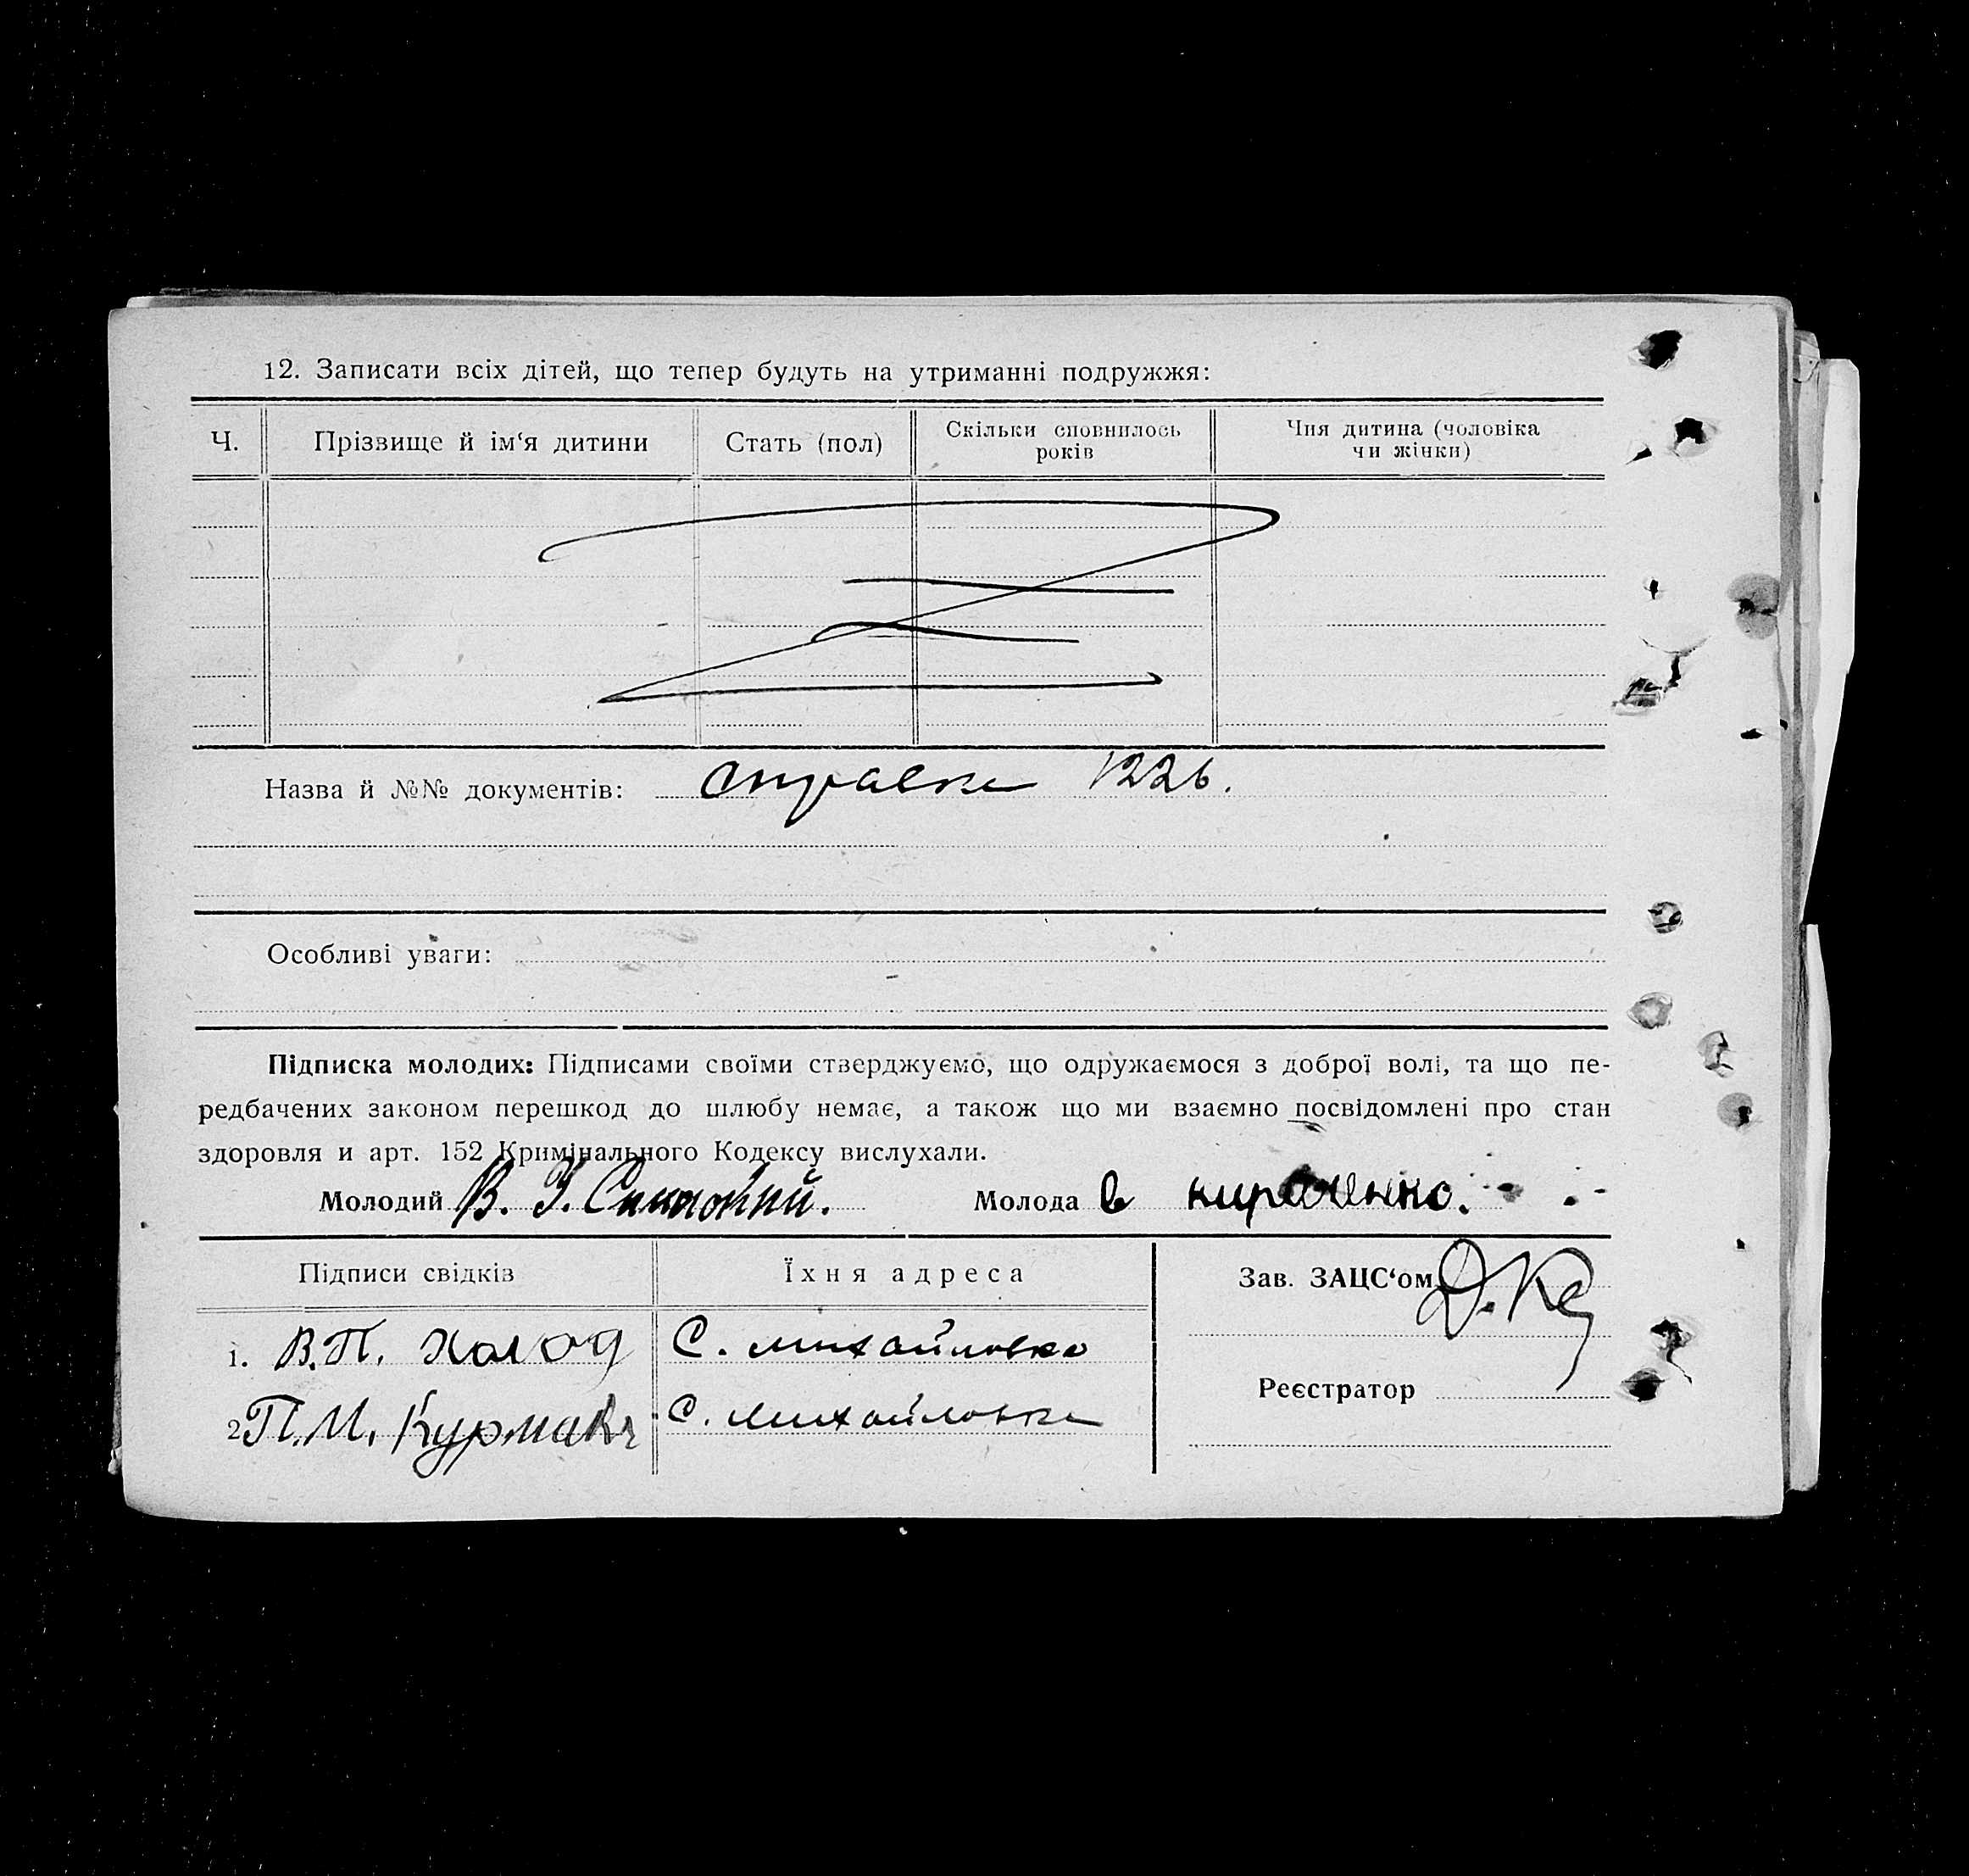 12. Записати всіх дітей, що тепер будуть на утриманні подружжя:
Ч. Прізвище й ім‘я дитини Стать (пол) Скільки сповнилось років Чия дитина (чоловіка чи жінки)
Назва й №№ документів: справка 1226.
Особливі уваги:
Підписка молодих: Підписами своїми стверджуємо, що одружаємося з доброї волі, та що пе-
редбачених законом перешкод до шлюбу немає, а також що ми взаємно посвідомлені про стан
здоровля и арт. 152 Кримінального Кодексу вислухали.
Молодий В. У. Молода в
Підписи свідків Їхня адреса Зав. ЗАЦС‘ом Д. Ке
1. В.П. Холод С. Михайловка
Реєстратор
2 П.М. Курмака С. Михайловка